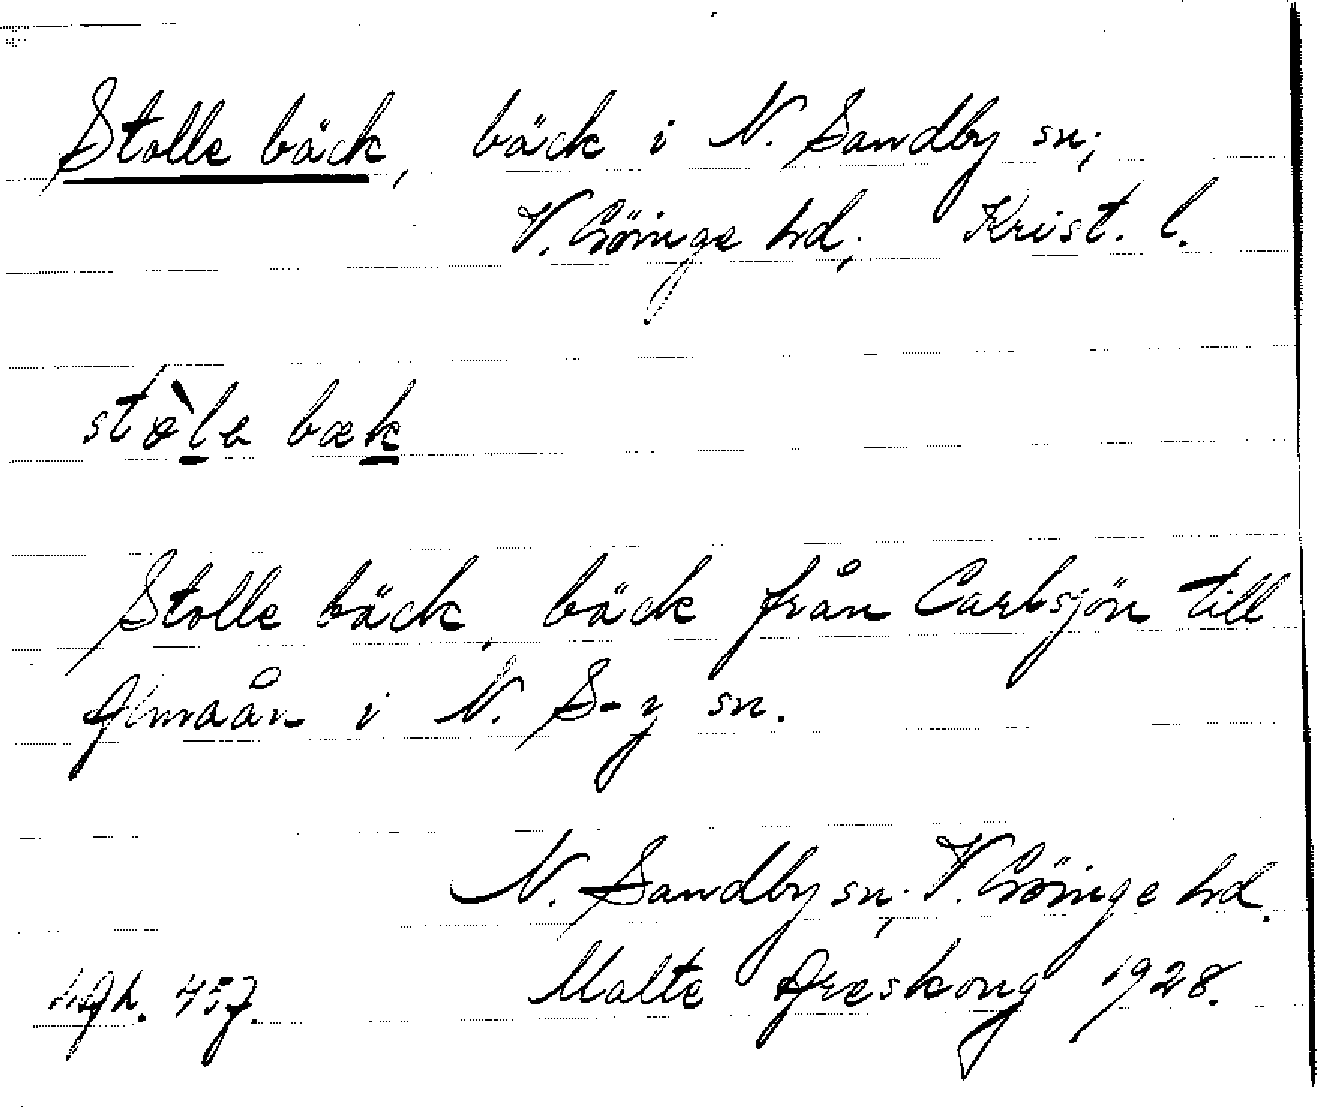 Stolle bäck, bäck i N. Sandby sn;
V. Göinge hd; Krist. l.
bæk
Stolle bäck, bäck från Carlsjön till
Almaån i N. S-y sn.
N. Sandby sn; V. Göinge hd.
Malte Areskoug 1928.